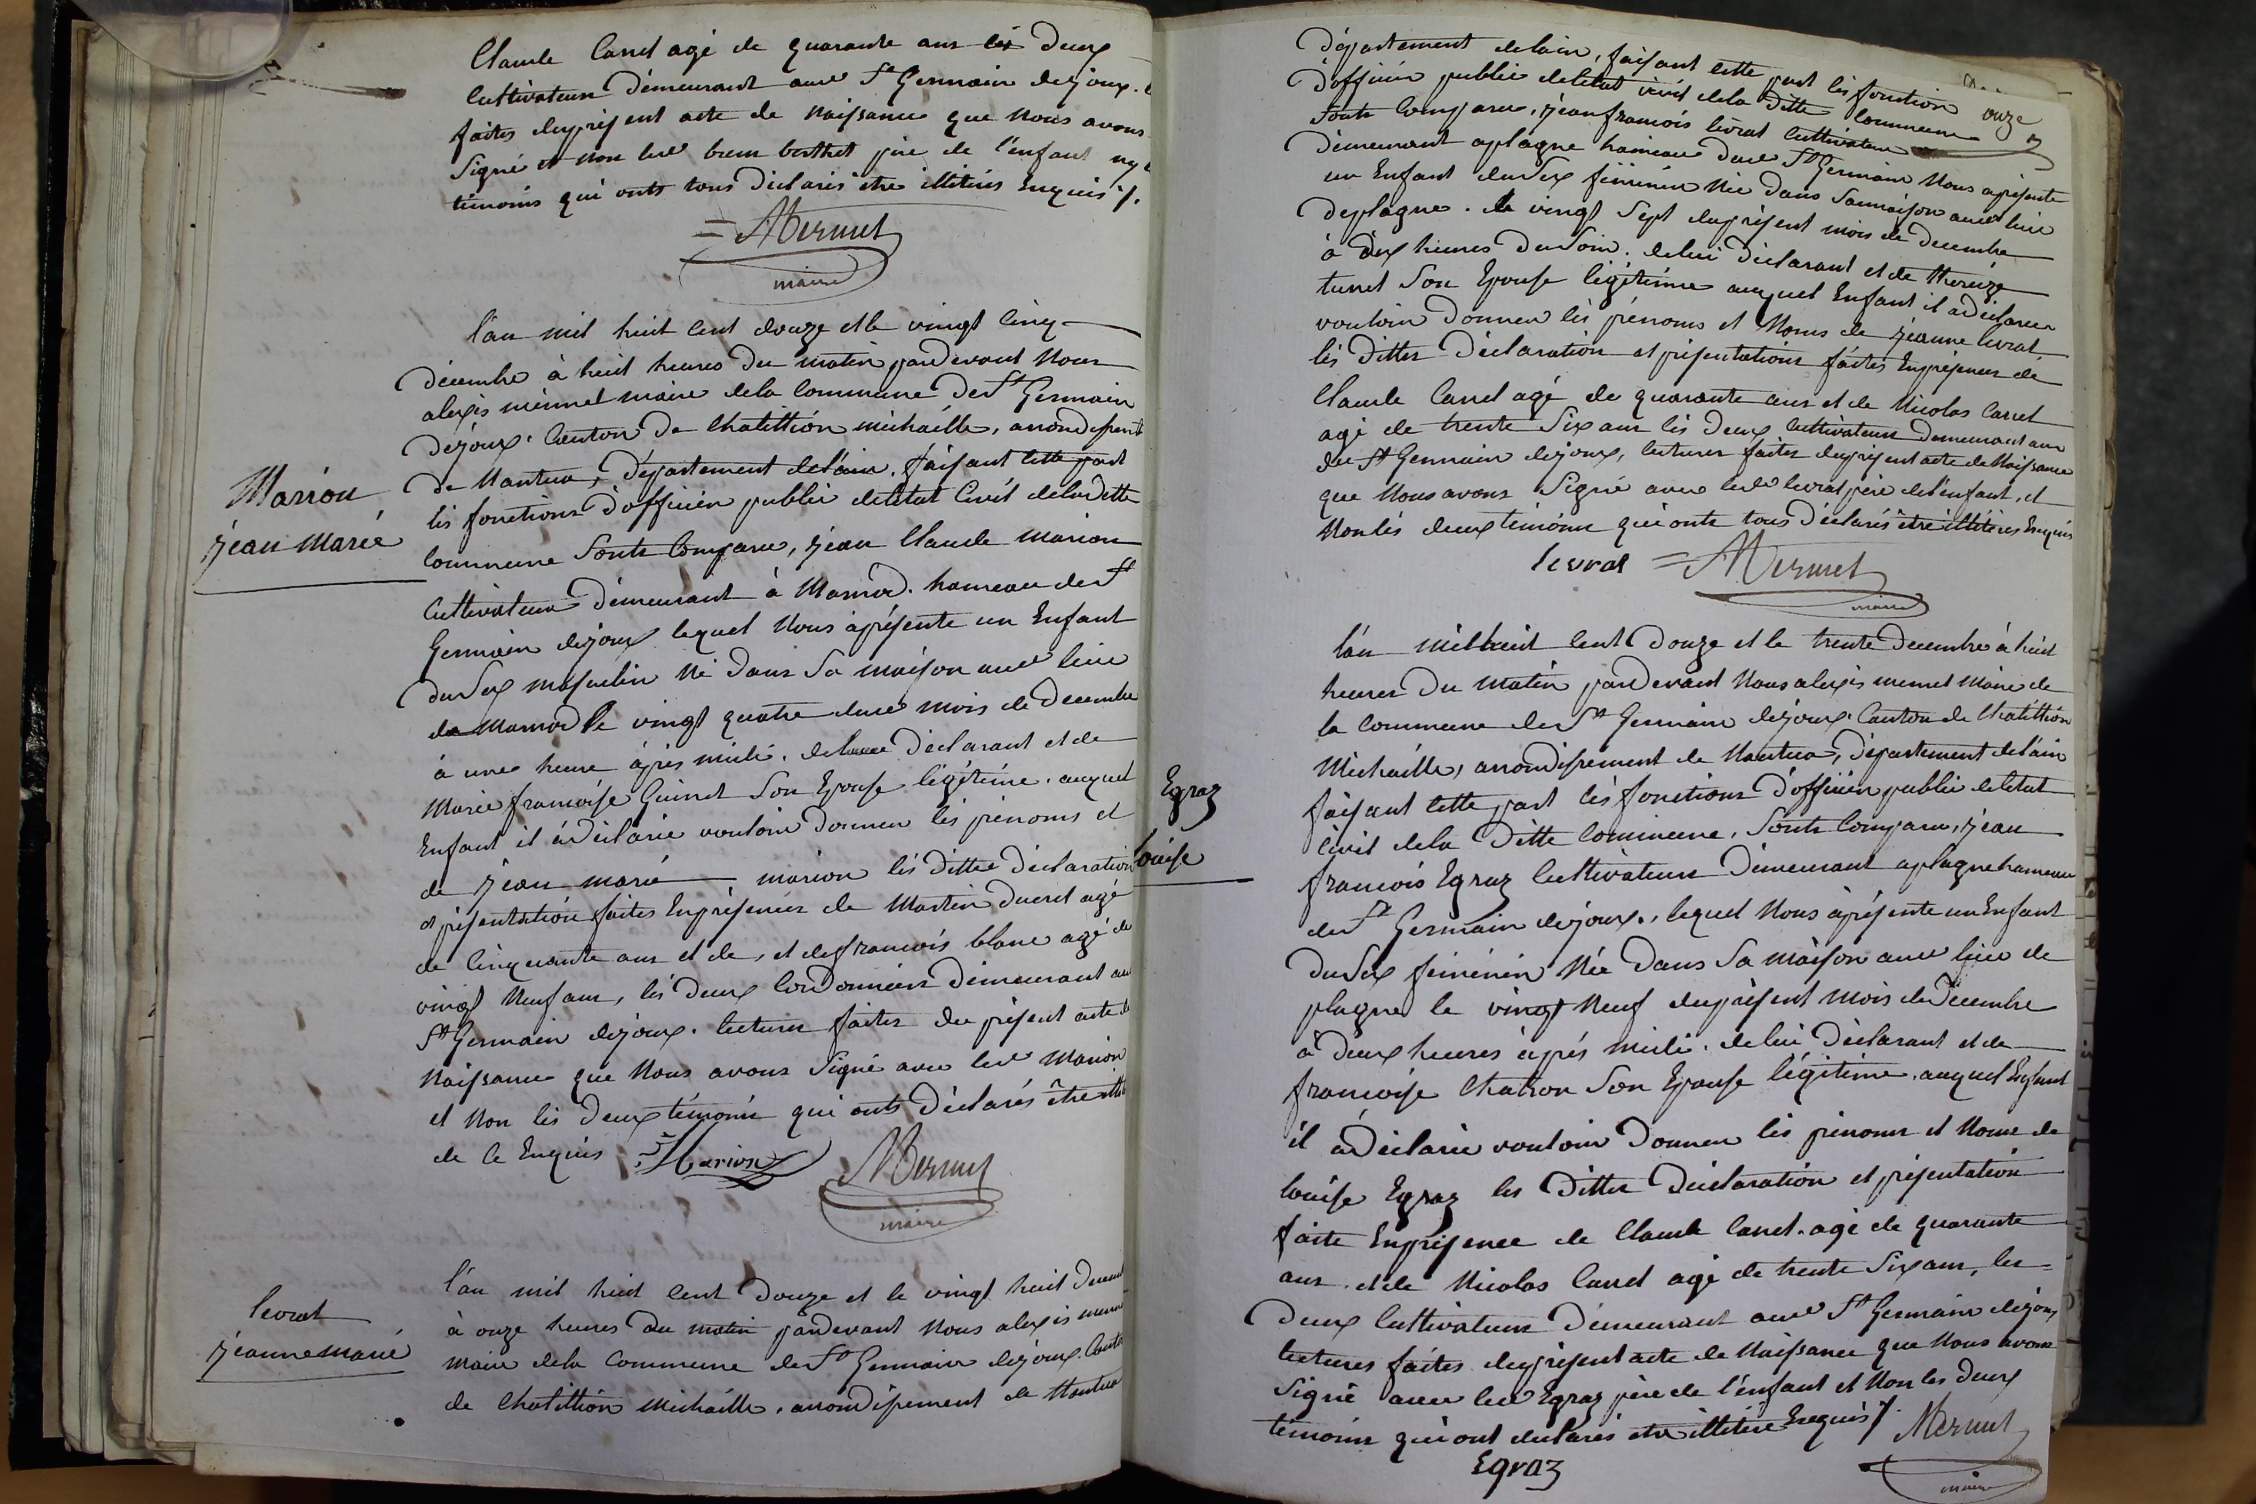 Claude Carrel agé de quarante ans les deux
Cultivateurs démeurant aud St Germain dejoux.
faites du présent acte de Naissance que Nous avons
Signé et non led brun berthet pere de l'enfant ny
témoins qui onts tous déclarés etre illitérés Enquis
AMermet
maire
l'an mil huit cent douze et le vingt cinq
décembre à huit heures du matin pardevant Nous
alexis mermet maire dela Commune de St Germain
dejoux. Canton de Chatillion michaille, arrondissement
de Nantua, Département del'ain. faisant cette part
les fonctions d'officier public deletat Civil deladitte
Commune Sonts Comparu, jean Claude marion
Cultivateur démeurant à Marnod. hameau de St
Germain dejoux lequel Nous à présenté un Enfant
du Sex masculin Né dans Sa maison aud lieu
de Marnod le vingt quatre dud mois de decembre
à une heure àprés midi. de Déclarant et de
Marie françoise Guinet Son Epouse légitime. auquel
Enfant il à déclaré vouloir donner les prénoms et
de jean marié marion les dittes déclaration
et présentation faites En présences de Martin Ducret agé
de Cinquante ans et de, et de françois blanc agé de
vingt Neuf ans, les deux Cordonniers démeurant aud
St Germain dejoux. lectures faites du présent acte de
Naissance que Nous avons Signé avec led Marion
et Non les deux témoins qui onts déclarés être
de ce Enquis Marion AMermet
maire
Marion
jean Marié
l'an mil huit cent Douze et le vingt huit
à onze heures du matin pardevant Nous alexis
maire dela Commune de St Germain dejoux.
de Chatillion Michaille, arrondissement de Nantua
levrat
jeanne Marié
onze
Département del'ain, faisant cette part les fonction
d'officier public deletat civil dela ditte Commune
Sonts Comparu, jean francois levrat Cultivateur
démeurant aplagne hameau dud St Germain Nous a présenté
un Enfant du Sex féminin Née dans Sa maison aud lieu
deplagne. le vingt Sept du présent mois de decembre
à dix heures du Soir. de lui Déclarant et de théréze
turret Son Epouse légitime auquel Enfant il a déclarer
vouloir Donner les prénoms et Noms de jeanne levrat.
les dittes Déclaration et présentations faites En présences de
Claude Carrel agé de quarante ans et de Nicolas Carrel
agé de trente Six ans les deux Cultivateurs Démeurant aud
du St Germain dejoux, lectures faites du présent acte de Naissance
que Nous avons Signé avec led levrat pere del'enfant, et
Non les deux témoins qui onts tous déclarés être illitérés Enquis
levrat AMermet
maire
l'an mil huit cent Douze et le trente Decembre à huit
heures Du Matin pardevant Nous alexis mermet Maire de
la Commune de St Germain dejoux. Canton de Chatillion
Michaille, arrondissement de Nantua, département del'ain
faisant cette part les fonctions d'officier public deletat
civil dela ditte Commune. Sonts Comparu, jean
francois Egraz Cultivateur Démeurant aplagne hameau
de St Germain dejoux., lequel Nous àprésenté un Enfant
Du Sex féminin Née Dans Sa Maison aud lieu de
plagne le vingt Neuf du présent Mois de Décembre
à Deux heures àprés midi. de lui Déclarant et de
francoise Chatron Son Epouse légitime. auquel Enfant
il à Déclaré vouloir Donner les prénoms et Noms de
louise Egraz les Dittes Déclaration et présentation
faite En présence de Claude Carrel agé de quarante
ans. et de Nicolas Carrel agé de trente Six ans, les
Deux Cultivateurs Démeurant aud St Germain dejoux
lectures faites du présent acte de Naissance que Nous avons
Signé avec led Egraz père de l'enfant et Non les Deux
témoins qui ont declarés etre illitéré Enquis
AMermet
Egraz
maire
Egraz
louise